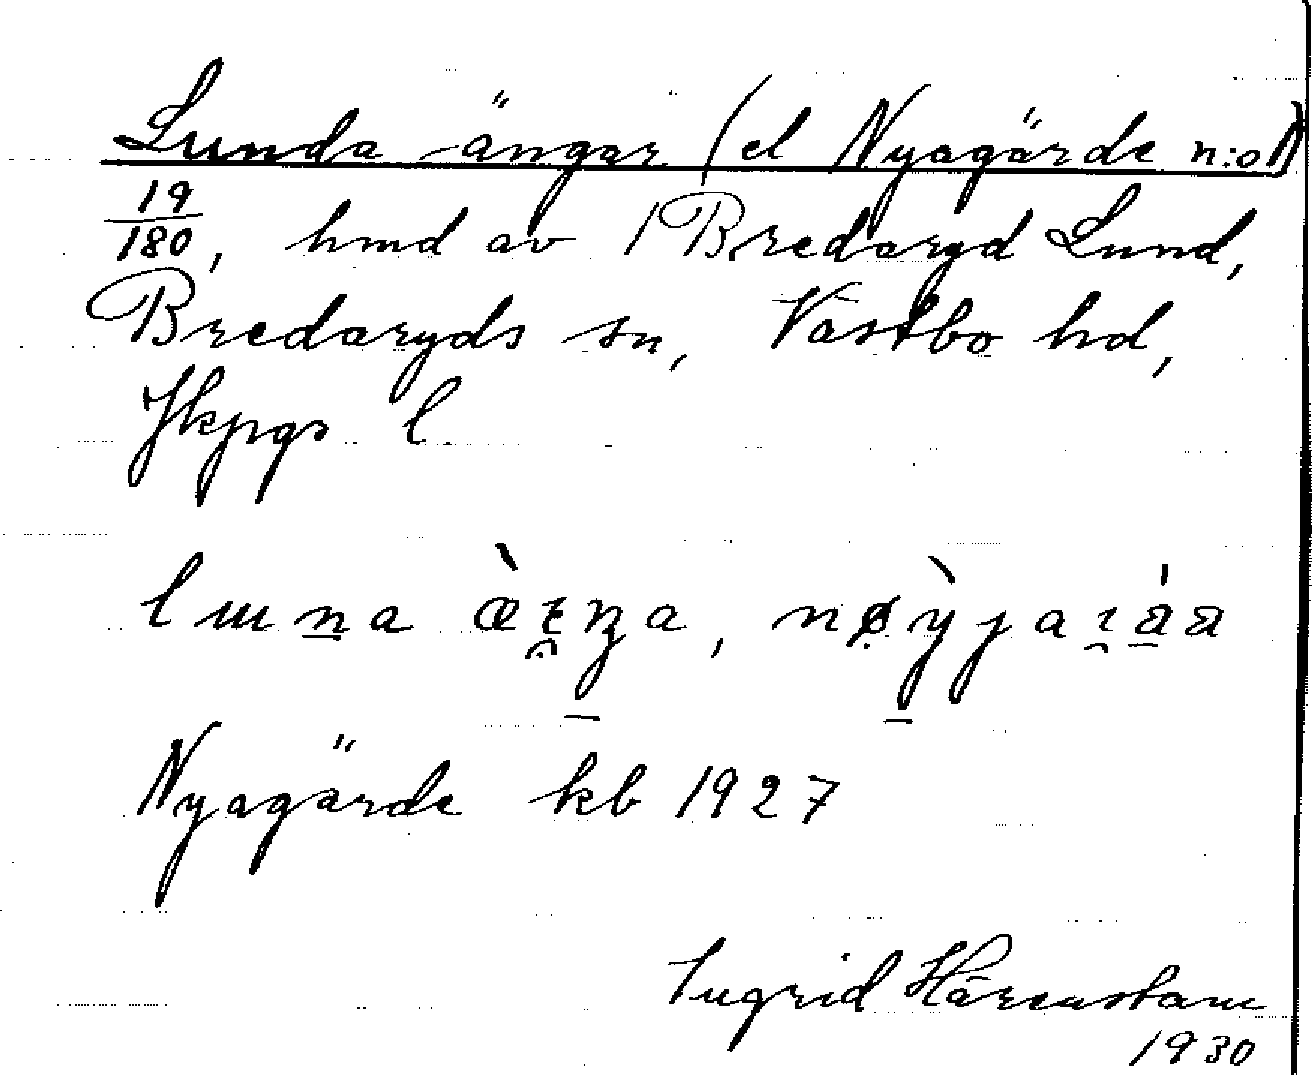 Lunda ängar (el Nyagärde n:o 1)
19/180, hmd av 1 Bredaryd Lund,
Bredaryds sn, Västbo hd,
Jkpgs l
Nyagärde kb 1927
Ingrid Härenstam
1930